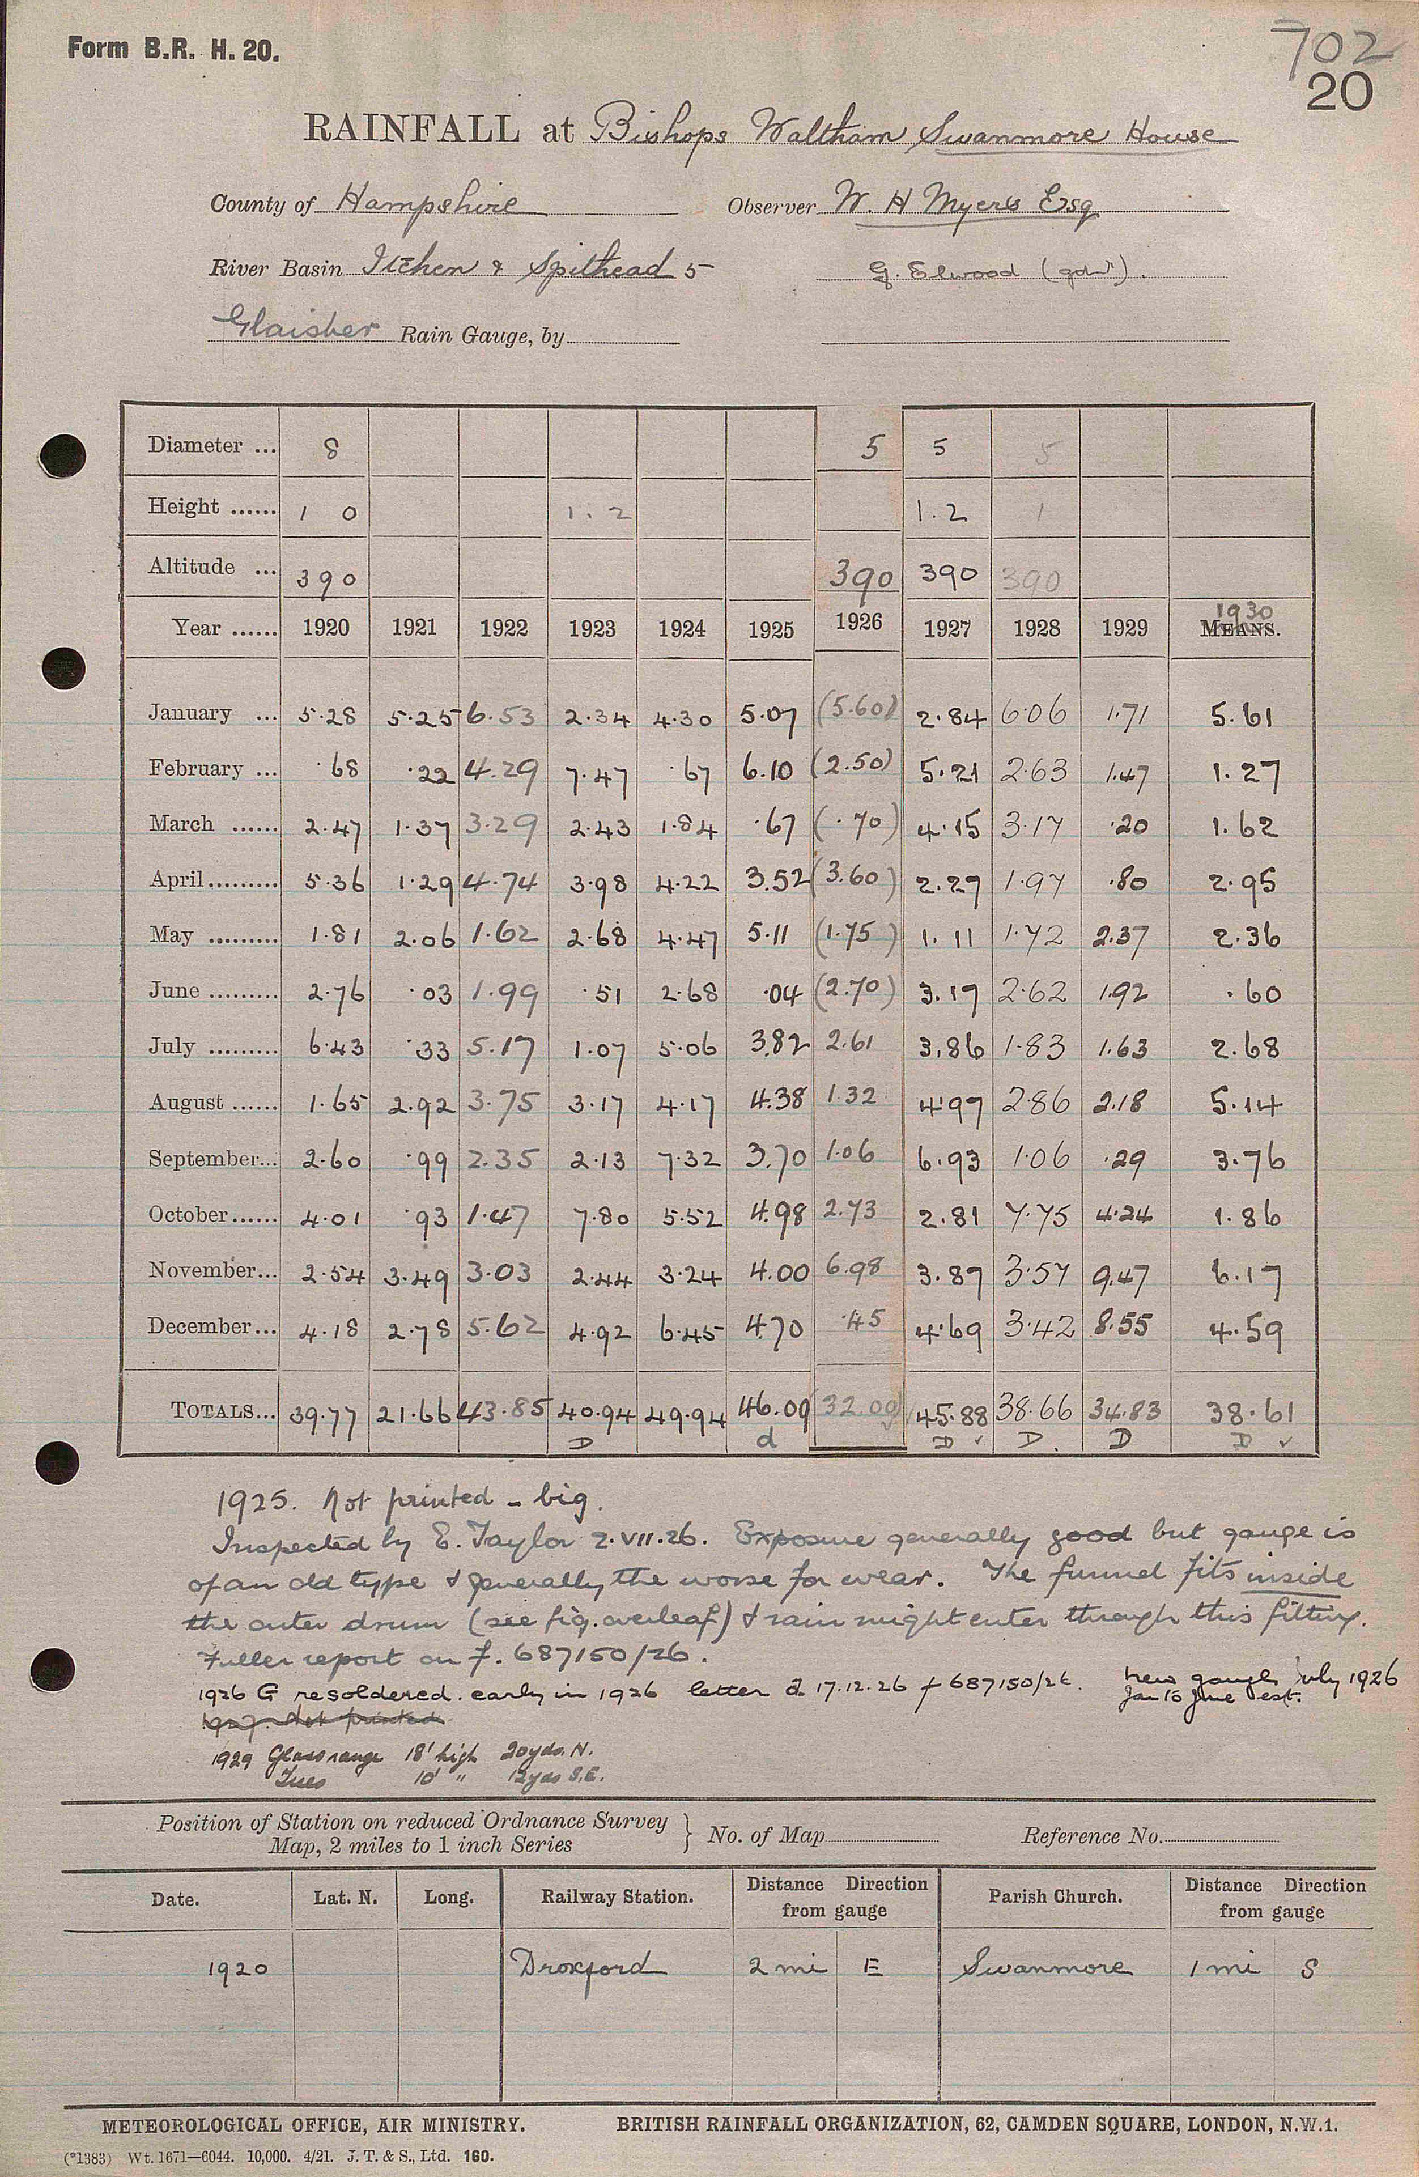 Form B.R. H. 20.
702
20
RAINFALL at Bishops Waltham Swanmore House
County of Hampshire Observer W. H Myers Esq
River Basin Itchen & Spithead 5 G. Elwood (gdnr).
Glaisher Rain Gauge, by
Diameter ... 8 5 5 5
Height ...... 1 0 1. 2 1. 2 1
Altitude ... 390 390 390 390
Year ...... 1920 1921 1922 1923 1924 1925 1926 1927 1928 1929 1930 MEANS.
January ... 5.28 5.25 6.53 2.34 4.30 5.07 (5.60) 2.84 6.06 1.71 5.61
February ... .68 .22 4.29 7.47 .67 6.10 (2.50) 5.21 2.63 1.47 1.27
March ...... 2.47 1.37 3.29 2.43 1.84 .67 (.70) 4.15 3.17 .20 1.62
April ......... 5.36 1.29 4.74 3.98 4.22 3.52 (3.60) 2.27 1.97 .80 2.95
May ......... 1.81 2.06 1.62 2.68 4.47 5.11 (1.75) 1.11 1.72 2.37 2.36
June ......... 2.76 .03 1.99 .51 2.68 .04 (2.70) 3.17 2.62 1.92 .60
July ......... 6.43 .33 5.17 1.07 5.06 3.82 2.61 3.86 1.83 1.63 2.68
August ...... 1.65 2.92 3.75 3.17 4.17 4.38 1.32 4.97 2.86 2.18 5.14
September... 2.60 .99 2.35 2.13 7.32 3.70 1.06 6.93 1.06 .29 3.76
October ...... 4.01 .93 1.47 7.80 5.52 4.98 2.73 2.81 7.75 4.24 1.86
November... 2.54 3.49 3.03 2.44 3.24 4.00 6.98 3.87 3.57 9.47 6.17
December... 4.18 2.78 5.62 4.92 6.45 4.70 .45 4.69 3.42 8.55 4.59
TOTALS... 39.77 21.66 43.85 40.94 49.94 46.09 (32.00) 45.88 38.66 34.83 38.61
D d D ✓ D. D D ✓
1925. Not printed - big.
Inspected by E. Taylor 2.VII.26. Exposure generally good but gauge is
of an old type & generally the worse for wear. The funnel fits inside
the outer drum (see fig. overleaf) & rain might enter through this fitting.
Fuller report on f. 687150/26.
1926 G resoldered early in 1926 letter d 17.12.26 f 687150/26. New gauge July 1926
Jan to June est.
1927. Not printed
1929 Glass range 18' high 20yds. N.
Trees 10' " 12yds S.E.
Position of Station on reduced Ordnance Survey
Map, 2 miles to 1 inch Series } No. of Map Reference No.
Date. Lat. N. Long. Railway Station. Distance Direction from gauge Parish Church. Distance Direction from gauge
1920 Droxford 2 mi E Swanmore 1 mi S
METEOROLOGICAL OFFICE, AIR MINISTRY. BRITISH RAINFALL ORGANIZATION, 62, CAMDEN SQUARE, LONDON, N.W.1.
(*1383) Wt. 1671—6044. 10,000. 4/21. J. T. & S., Ltd. 160.